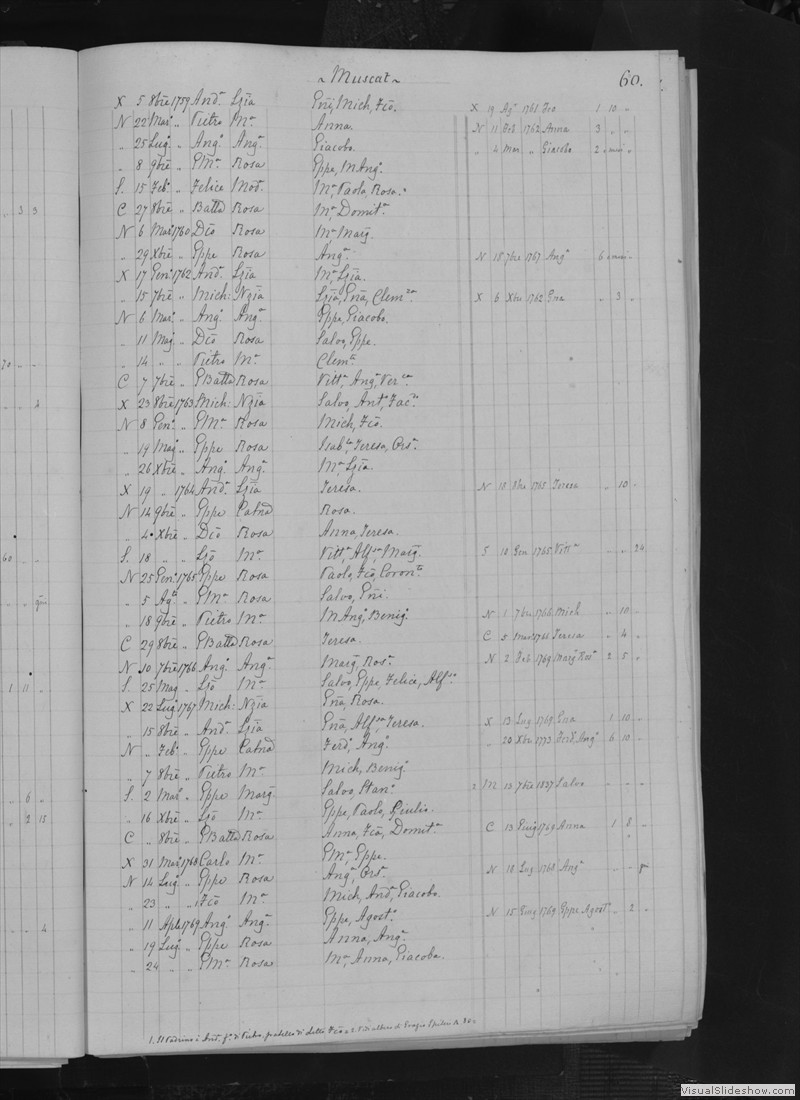 ~ Muscat ~ 60.
X 5 8bre 1759 Andª Lzia Eni, Mich, Fcō. X 19 Agº 1761 Fco 1 10 "
N 22 Marº " Pietro Mª Anna. N 11 Feb 1762 Anna 3 " "
" 25 Lugº " Angº Angª Giacoba. " 4 Mar " Giacoba 2 "
" 8 9bre " GMª Rosa Gppe, M Angª.
S. 15 Febº " Felice Mod. Mª, Paola, Rosa.
C 27 8bre " Batta Rosa Mª, Domitª.
N 6 Marº 1760 Dco Rosa Mª Marg.
" 29 Xbre " Gppe Rosa Angª. N 15 7bre 1767 Angª 6
X 17 Genº 1762 And. Lzia Mª, Lzia.
" 15 7bre " Mich: Nzia Lzia, Ena, Clemza X 6 Xbre 1762 Ena " 3 "
N 6 Marº " Angº Angª Gppe, Giacoba.
" 11 Magº " Dco Rosa Salvo, Gppe.
" 14 " " Pietro Mª Clemte
70 " "
C 7 7bre " GBatta Rosa Vittª, Angª, Verca.
" " 4
X 23 8bre 1763 Mich: Nzia Salvo, Antª,
N 8 Genº " GMª Rosa Mich, Fcō.
" 19 Magº " Gppe Rosa Isabla, Teresa, Orsª.
" 26 Xbre " Angº Angª Mª, Lzia.
X 19 " 1764 And. Lzia Teresa. N 18 8bre 1765 Teresa " 10 "
N 14 9bre " Gppe Catna Rosa.
" 4 Xbre " Dco Rosa Anna, Teresa.
60 " "
S. 18 " " Lzo Mª Vittª, Alfsa, Marg. S 10 Gen 1765 Vittª " " 24
N 25 Genº 1765 Gppe Rosa Paolo, Fcō,
" 5 Agto " GMª Rosa Salvo, Eni.
" 18 9bre " Pietro Mª M Angº, Benigº. N 1 7bre 1766 Mich " 10 "
C 29 8bre " GBatta Rosa Teresa. C 5 Mar 1766 Teresa " 4 "
N 10 7bre 1766 Angº Angª Marg, Rosª. N 2 Feb 1769 Marg Rosª 2 5 "
1 11 "
S. 25 Mag " Lzo Mª Salvo, Gppe, Felice, Alfso
X 22 Lugº 1767 Mich: Nzia Ena, Rosa.
" 15 8bre " And. Lzia Ena, Alfsa, Teresa. X 13 Lug 1769 Ena 1 10 "
N " Febº " Gppe Catna Ferdº, Angº. " 20 Xbre 1773 Ferd. Angº 6 10 "
" 7 8bre " Pietro Mª Mich, Benigº
" 6 "
S. 2 Marº " Gppe Marg Salvo, Stanº. 2 M 13 7bre 1837 Salvo " " "
" 2 15
" 16 Xbre " Lzo Mª Gppe, Paolo, Giulio.
C " 8bre " GBatta Rosa Anna, Fca, Domitª. C 13 Giug 1769 Anna 1 8 "
X 31 Marº 1768 Carlo Mª GMª, Gppe.
N 14 Lugº " Gppe Rosa Angª, Orsª. N 18 Lug 1768 Angª " "
" 23 " " Fco Mª Mich, Andª, Giacoba.
" " 4
" 11 Aple 1769 Angº Angª Gppe, Agostº. N 15 Giug 1769 Gppe Agostº " 2 "
" 19 Lugº " Gppe Rosa Anna, Angª.
" 24 " " GMª Rosa Mª, Anna, Giacoba.
1. Il Padrino è And. fº di Pietro, fratello di detto Fco
VisualSlideshow.com